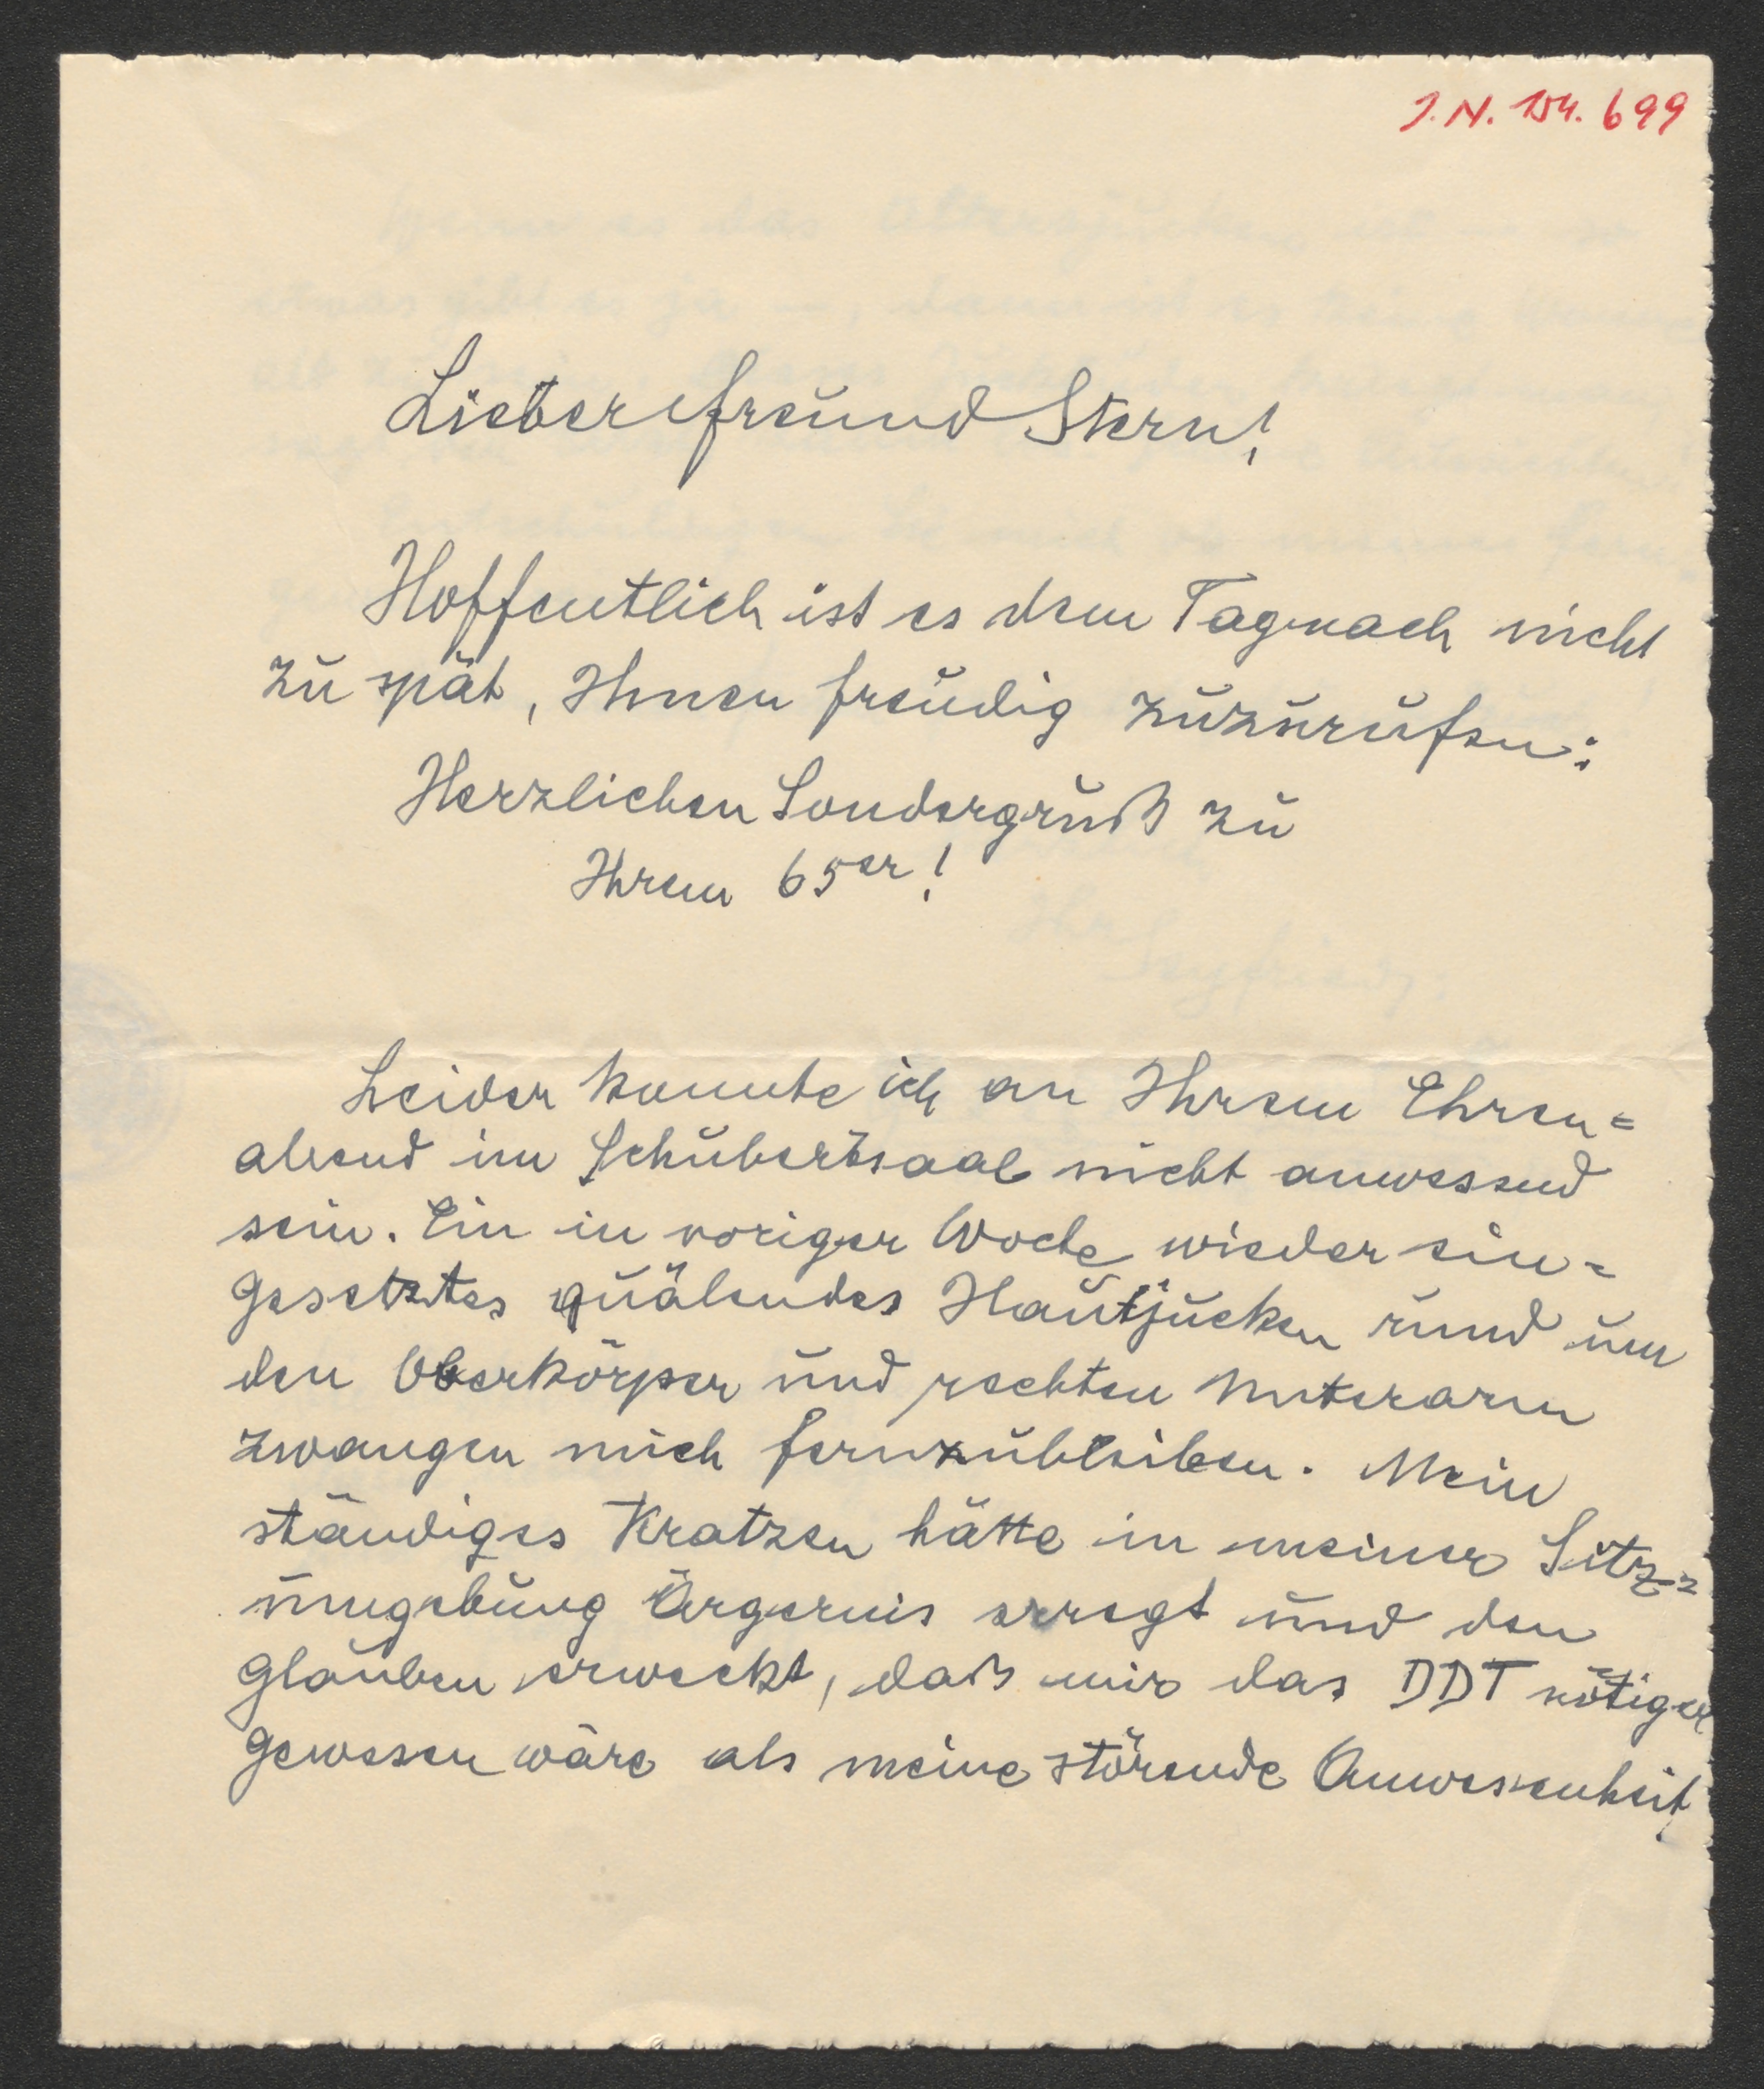 J.N. 154.699
Lieber Freund Stern!
Hoffentlich ist es dem Tagnach nicht
zu spät, Ihnen freudig zuzurufen:
Herzlichen Sondergruß zu
Ihrem 65er!
Leider konnte ich an Ihrem Ehren=
abend im Schubertsaal nicht anwesend
sein. Ein in voriger Woche wieder ein=
gesetztes quälendes Hautjucken rund um
den Oberkörper und rechten Unterarm
zwangen mich fernzubleiben. Mein
ständiges Kratzen hätte in meiner Sitz=
umgebung Ärgernis erregt und den
Glauben erweckt, daß mir das DDT nötiger
gewesen wäre als meine störende Anwesenheit.